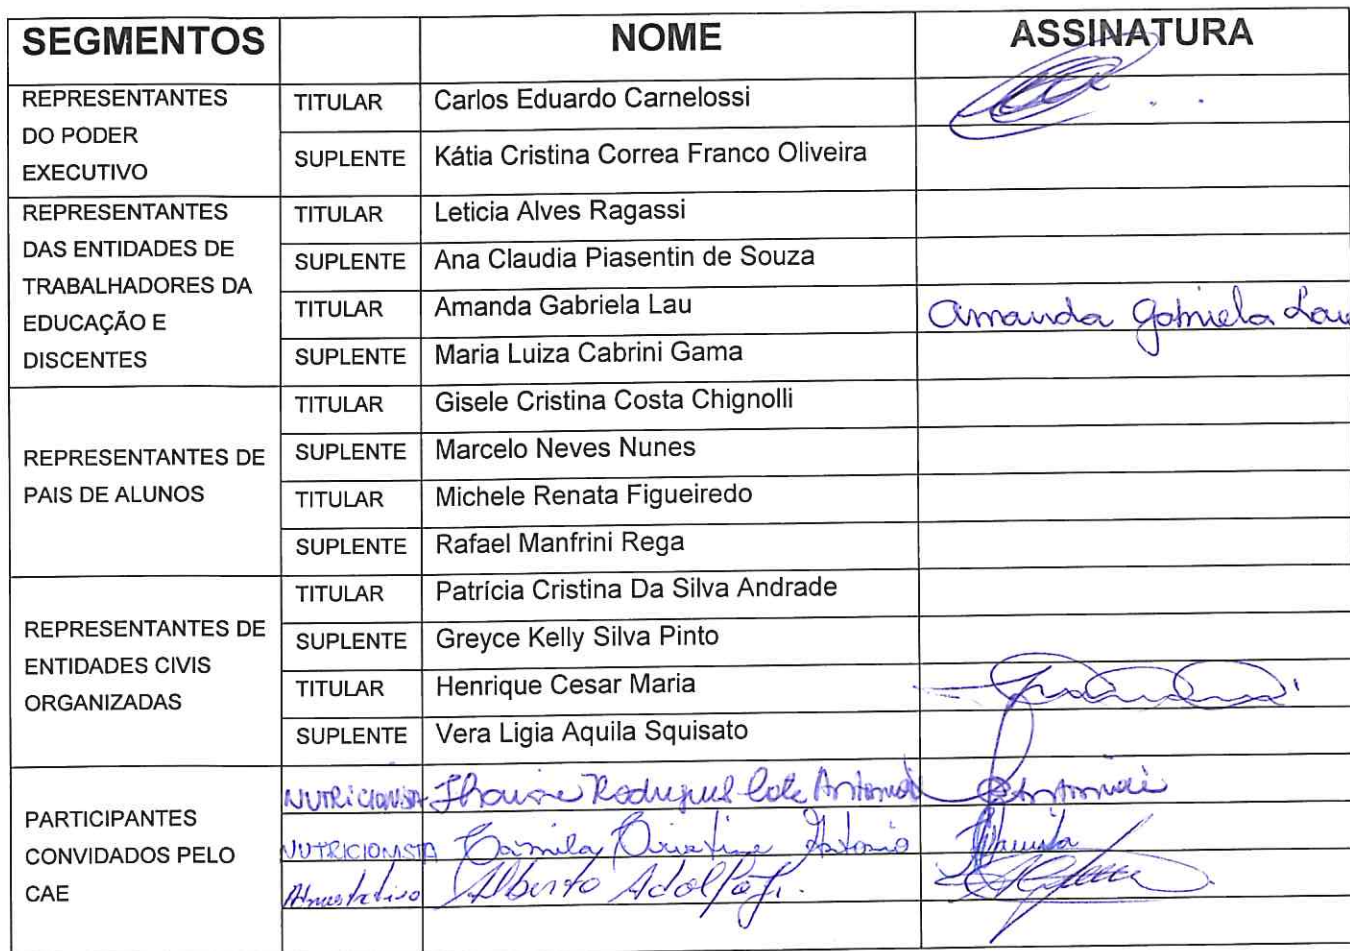 SEGMENTOS NOME ASSINATURA
REPRESENTANTES DO PODER EXECUTIVO
TITULAR Carlos Eduardo Carnelossi
SUPLENTE Kátia Cristina Correa Franco Oliveira
REPRESENTANTES DAS ENTIDADES DE TRABALHADORES DA EDUCAÇÃO E DISCENTES
TITULAR Leticia Alves Ragassi
SUPLENTE Ana Claudia Piasentin de Souza
TITULAR Amanda Gabriela Lau Amanda Gabriela Lau
SUPLENTE Maria Luiza Cabrini Gama
REPRESENTANTES DE PAIS DE ALUNOS
TITULAR Gisele Cristina Costa Chignolli
SUPLENTE Marcelo Neves Nunes
TITULAR Michele Renata Figueiredo
SUPLENTE Rafael Manfrini Rega
REPRESENTANTES DE ENTIDADES CIVIS ORGANIZADAS
TITULAR Patrícia Cristina Da Silva Andrade
SUPLENTE Greyce Kelly Silva Pinto
TITULAR Henrique Cesar Maria
SUPLENTE Vera Ligia Aquila Squisato
PARTICIPANTES CONVIDADOS PELO CAE
NUTRICIONISTA
NUTRICIONISTA Camila Antonio Camila
Alberto Adolfo